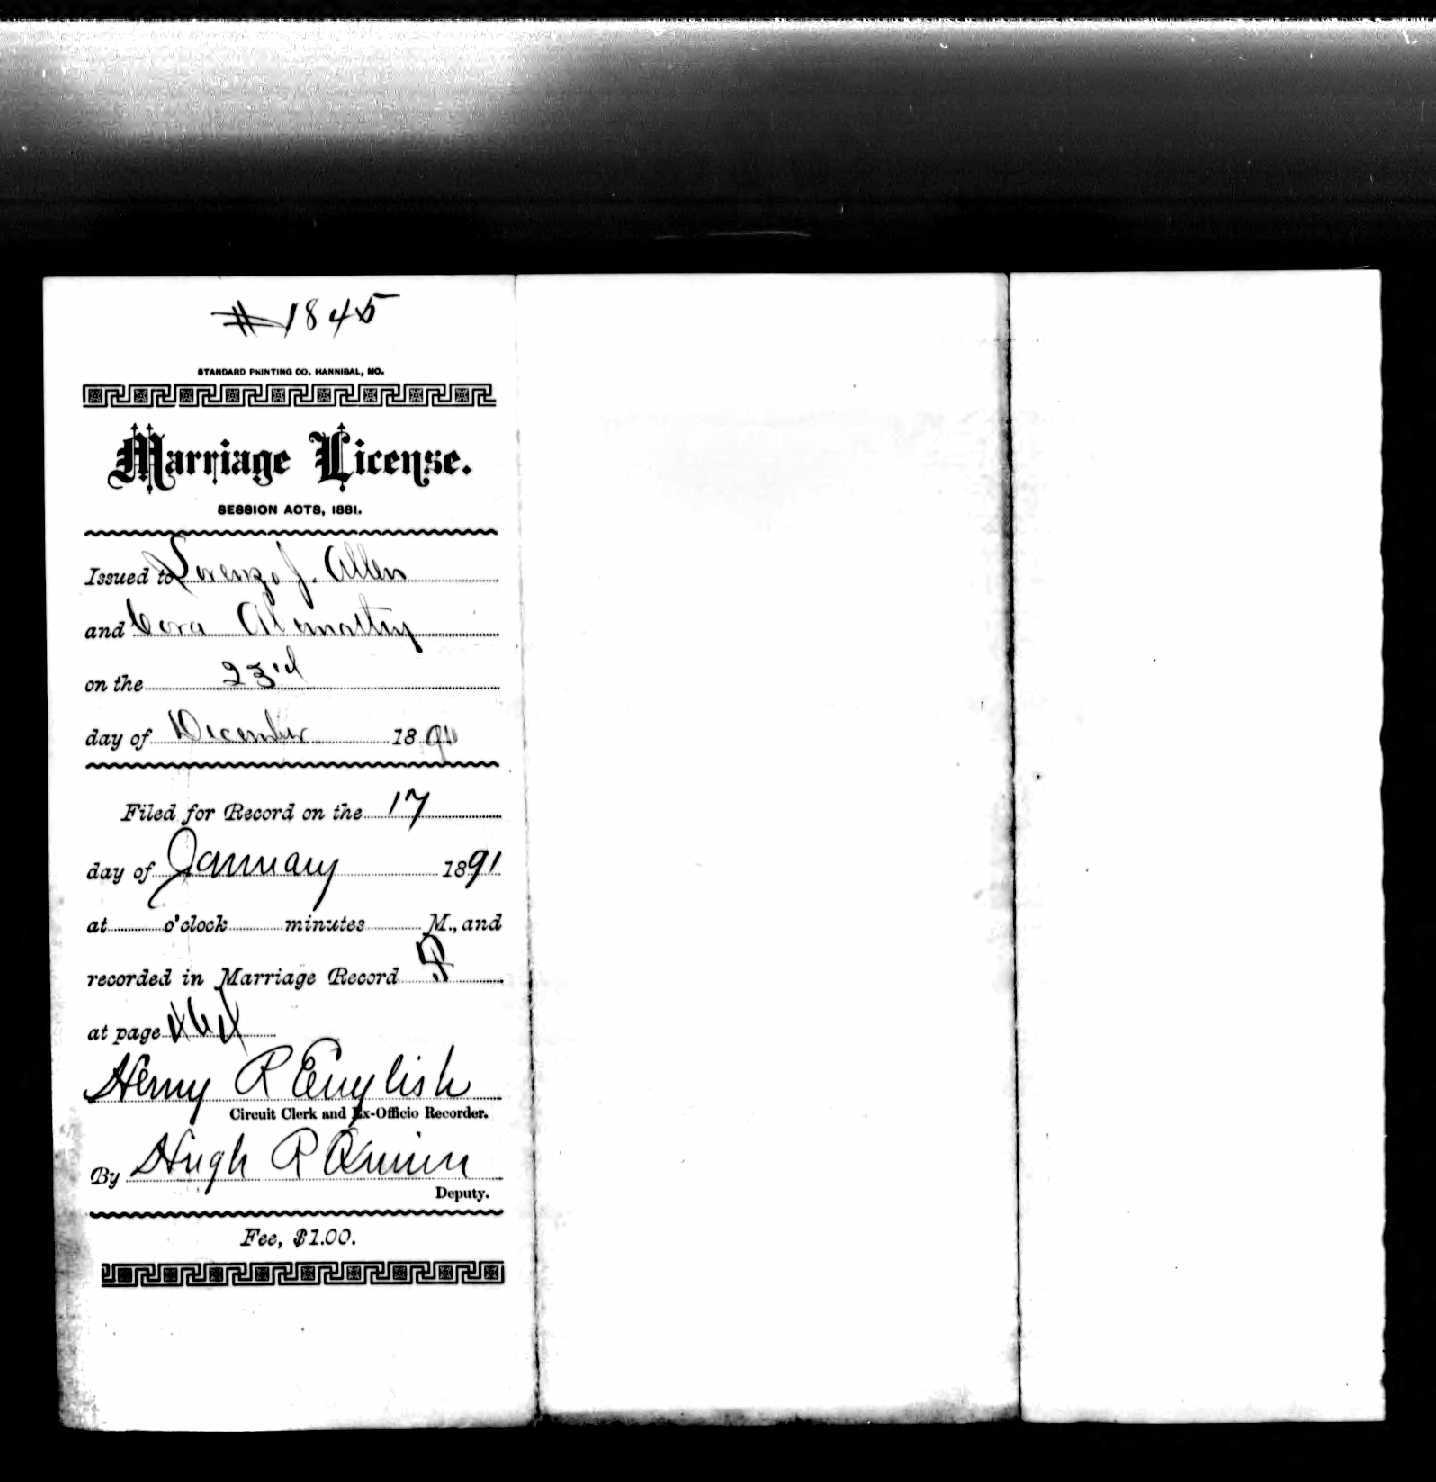 #1845
STANDARD PRINTING CO. HANNIBAL, MO.
Marriage License.
SESSION ACTS, 1881.
Issued to Lorenzo J. Allen
and Cora
on the 23rd
day of December 1890
Filed for Record on the 17
day of January 1891
at o'clock minutes M., and
recorded in Marriage Record
at page
Henry R English
Circuit Clerk and Ex-Officio Recorder.
By Hugh R Quinn
Deputy.
Fee, $1.00.